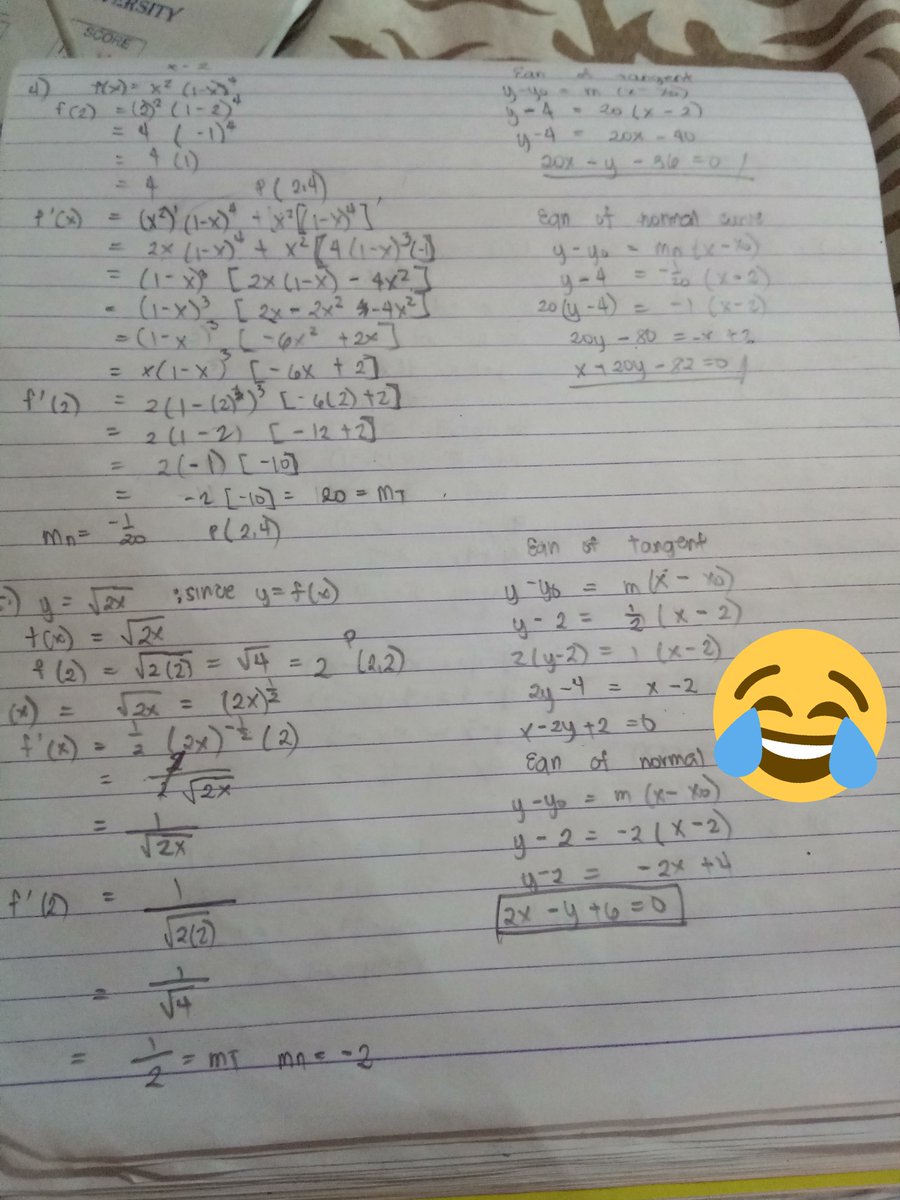 ERSITY
SCORE
x = 2
4) f(x) = x² (1-x)⁴
f(2) = (2)² (1-2)⁴
= 4 (-1)⁴
= 4 (1)
= 4 P(2,4)
f'(x) = (x²)' (1-x)⁴ + x² [(1-x)⁴]'
= 2x (1-x)⁴ + x² [4 (1-x)³(-1)]
= (1-x)³ [2x (1-x) - 4x²]
= (1-x)³ [2x - 2x² -4x²]
= (1-x)³ [-6x² +2x]
= x(1-x)³ [-6x + 2]
f'(2) = 2(1-(2))³ [-6(2)+2]
= 2(1-2) [-12+2]
= 2(-1) [-10]
= -2 [-10] = 20 = mT
mn = -1/20 P(2,4)
Eqn of tangent
y-y₀ = m (x-x₀)
y-4 = 20 (x-2)
y-4 = 20x - 40
20x - y - 36 = 0
Eqn of normal curve
y-y₀ = mn (x-x₀)
y-4 = -1/20 (x-2)
20(y-4) = -1 (x-2)
20y - 80 = -x + 2
x+20y-82=0
y = √2x ; since y = f(x)
f(x) = √2x
f(2) = √2(2) = √4 = 2 P(2,2)
(x) = √2x = (2x)^1/2
f'(x) = 1/2 (2x)^-1/2 (2)
= 2/2√2x
= 1/√2x
f'(2) = 1/√2(2)
= 1/√4
= 1/2 = mT mn = -2
Eqn of tangent
y-y₀ = m(x-x₀)
y-2 = 1/2 (x-2)
2(y-2) = 1 (x-2)
2y-4 = x-2
x-2y+2=0
Eqn of normal
y-y₀ = m (x-x₀)
y-2 = -2(x-2)
y-2 = -2x +4
2x -y +6 = 0